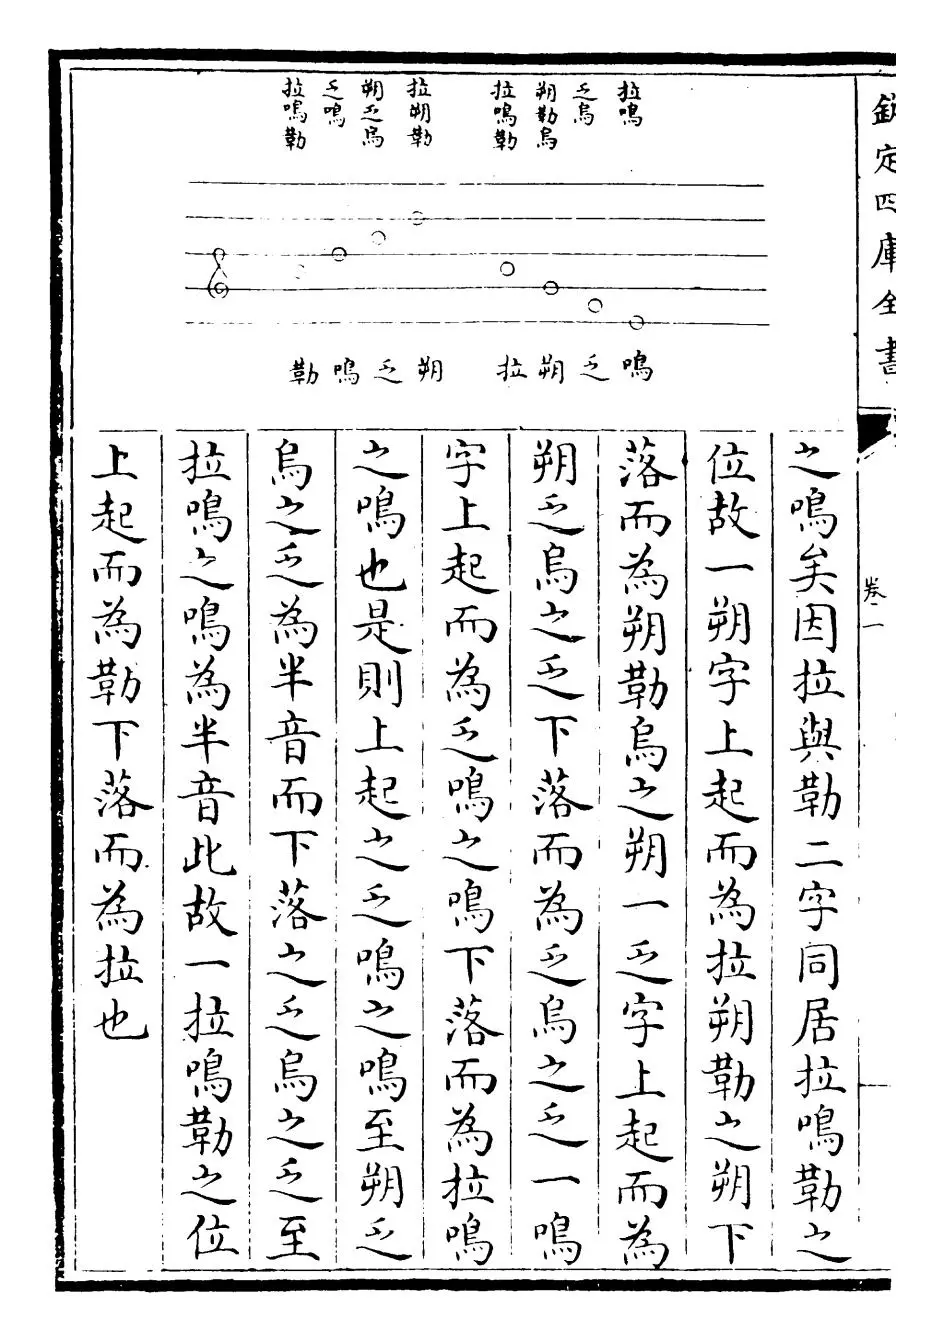 欽定四庫全書
卷二
拉鳴
乏烏
朔勒烏
拉鳴勒
拉朔勒
朔乏烏
乏鳴
拉鳴勒
鳴乏朔拉
朔乏鳴勒
之鳴矣因拉與勒二字同居拉鳴勒之
位故一朔字上起而為拉朔勒之朔下
落而為朔勒烏之朔一乏字上起而為
朔乏烏之乏下落而為乏烏之乏一鳴
字上起而為乏鳴之鳴下落而為拉鳴
之鳴也是則上起之乏鳴之鳴至朔乏
烏之乏為半音而下落之乏烏之乏至
拉鳴之鳴為半音此故一拉鳴勒之位
上起而為勒下落而為拉也